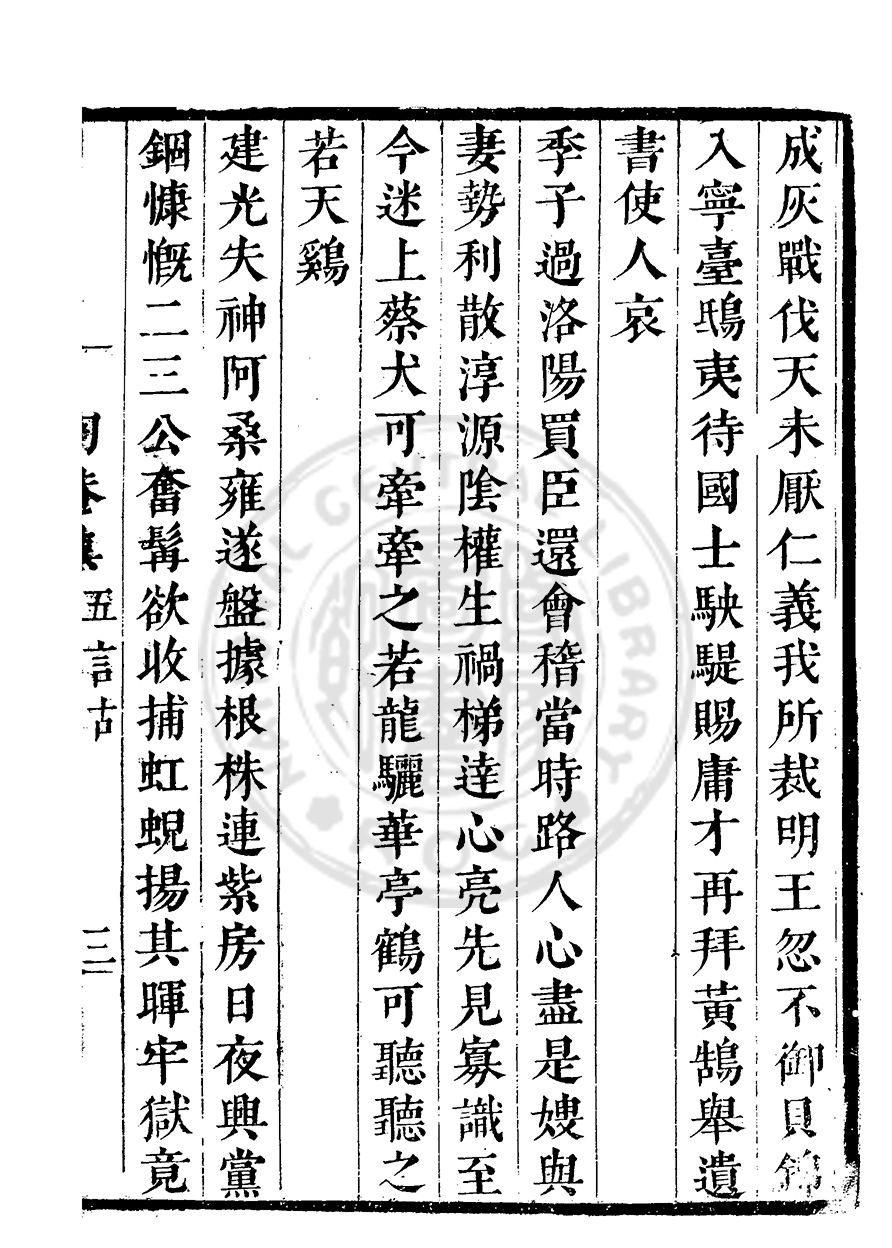 成灰戰伐天未厭仁義我所裁明王忽不御貝錦
入寧臺鴟夷待國士駃騠賜庸才再拜黃鵠舉遺
書使人哀
季子過洛陽買臣還會稽當時路人心盡是嫂與
妻勢利散淳源陰權生禍梯達心亮先見寡識至
今迷上蔡犬可牽牽之若龍驪華亭鶴可聽聽之
若天鷄
建光失神阿桑雍遂盤據根株連紫房日夜興黨
錮慷慨二三公奮髯欲收捕虹蜺揚其暉牢獄竟
五言古
三
NATIONAL CENTRAL LIBRARY